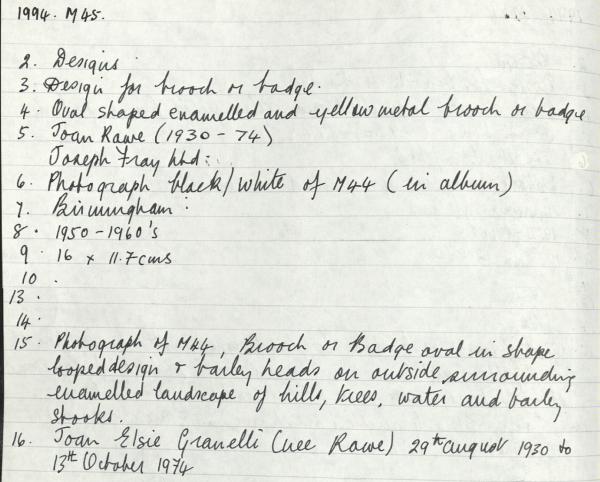 1994. M45.
2. Designs
3. Design for brooch or badge.
4. Oval shaped enamelled and yellow metal brooch or badge
5. Joan Rawe (1930-74)
Joseph Fray Ltd:
6. Photograph black/white of M44 (in album)
7. Birmingham:
8. 1950-1960's
9. 16 x 11.7cms
10.
13.
14.
15. Photograph of M44, Brooch or Badge oval in shape
looped design & barley heads on outside surrounding
enamelled landscape of hills, trees, water and barley
stooks.
16. Joan Elsie Granelli (nee Rawe) 29th August 1930 to
13th October 1974